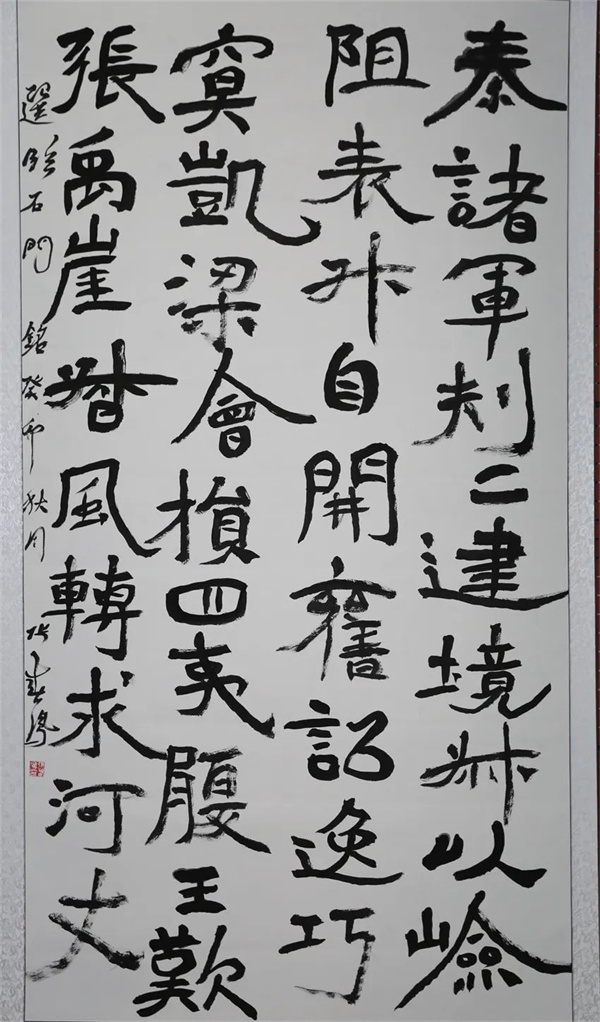 秦諸軍判二建境以嶮
阻表升自開舊詔逸巧
寞凱梁會損四夷腹王歎
張禹崖皆風轉求河丈
選臨石門銘癸卯秋月